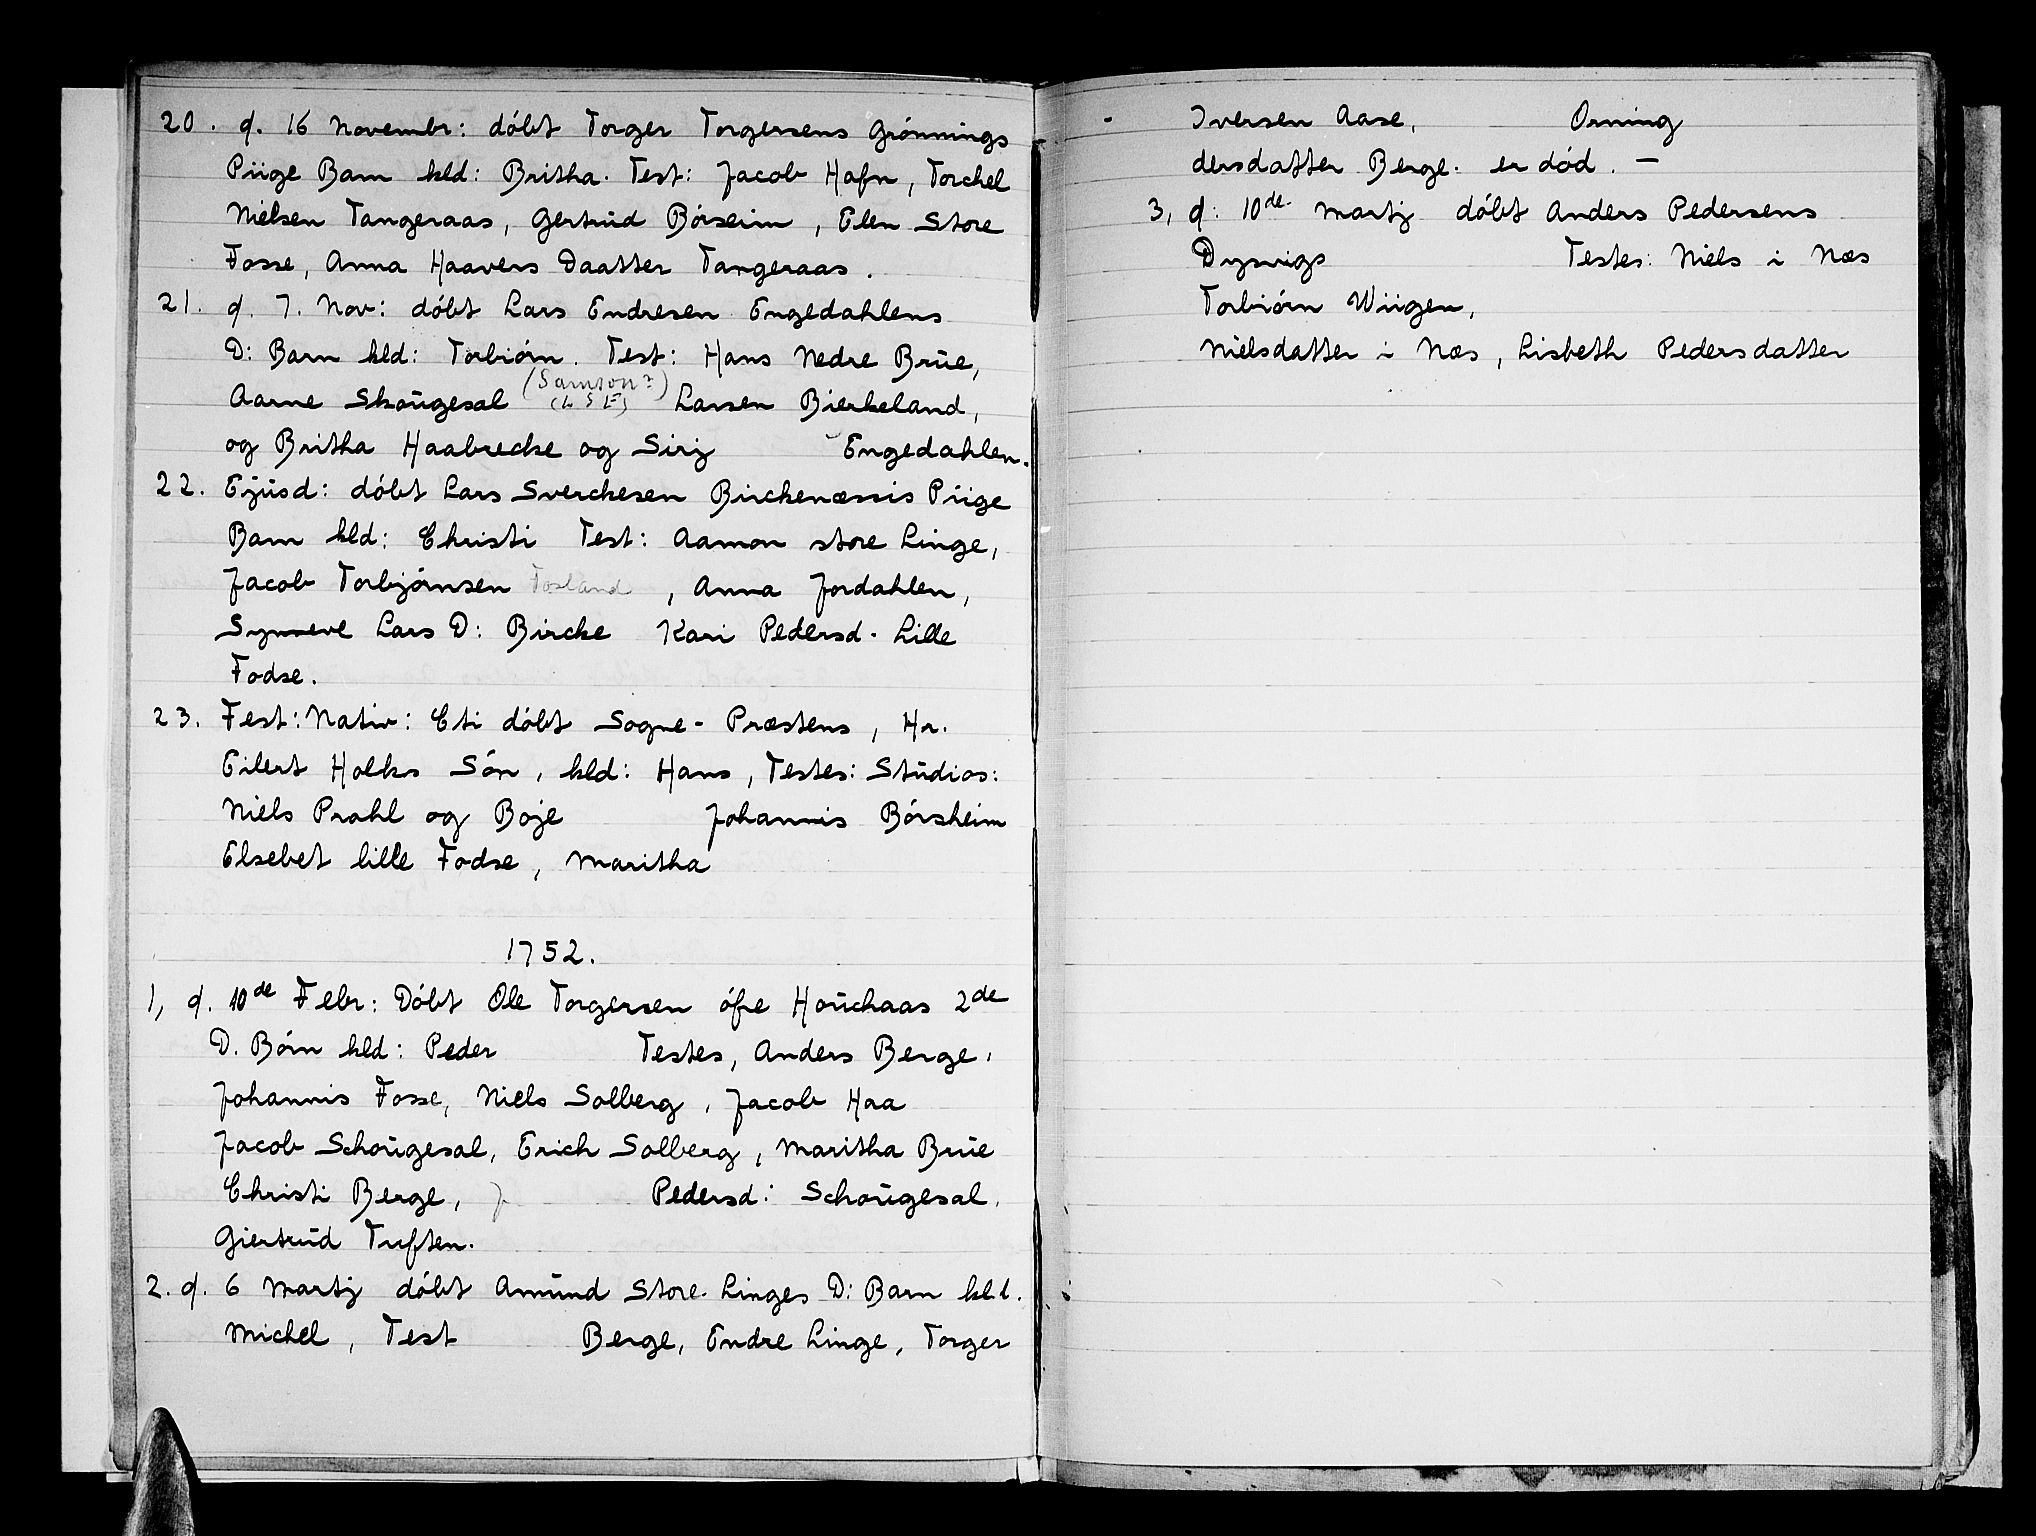 20. d. 16 Novembr: döbt Torger Torgersens Grönnings
Piige Barn kld: Britha. Test: Jacob Hafn, Torchel
Nielsen Tangeraas, Gertrūd Börseim, Elen Store
Fosse, Anna Haavers Daatter Tangeraas.
21. d. 7. Nov: döbt Lars Endresen Engedahlens
D: Barn kld: Torbiörn. Test: Hans Nedre Brūe,
(Samson?)
Aarne Skoūgesal (L S E) Larsen Bierkeland,
og Britha Haabrecke og Sirij Engedahlen.
22. Ejūsd: döbt Lars Sverckesen Birckenæssis Piige
Barn kld: Christi Test: Aamon store Linge,
Jacob Torbjörnsen Fosland, Anna Jordahlen,
Synneve Lars D: Bircke Kari Pedersd. Lille
Fodse.
23. Fest: Nativ: Cti döbt Sogne-Præstens, Hr.
Eilert Holks Sön, kld: Hans, Testes: Stūdios:
Niels Prahl og Boje Johannis Börsheim
Elsebet lille Fodse, Maritha
1752.
1, d. 10de Febr: Döbt Ole Torgersen öfre Hoūchaas 2de
D. Börn kld: Peder Testes, Anders Berge,
Johannis Fosse, Niels Solberg, Jacob Haa
Jacob Schoūgesal, Erich Solberg, Maritha Brūe
Christi Berge, J Pedersd: Schoūgesal,
Giertrūd Tuften.
2. d. 6 Martij döbt Amūnd Store Linges D: Barn kld.
Michel, Test Berge, Endre Linge, Torger
- Iversen Aase, Orning
dersdatter Berge. er död. —
3, d: 10de Martij döbt Anders Pedersens
Dysvigs Testes: Niels i Næs
Torbiörn Wiigen,
Nielsdatter i Næs, Lisbeth Pedersdatter